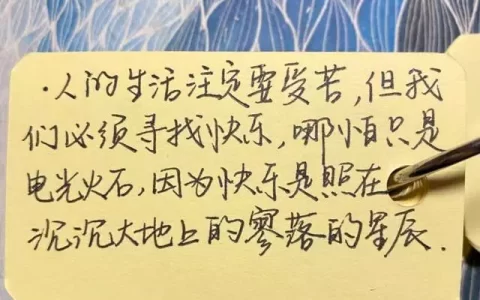 ·人的生活注定要受苦,但我
们必须寻找快乐,哪怕只是
电光火石,因为快乐是照在
沉沉大地上的寥落的星辰.